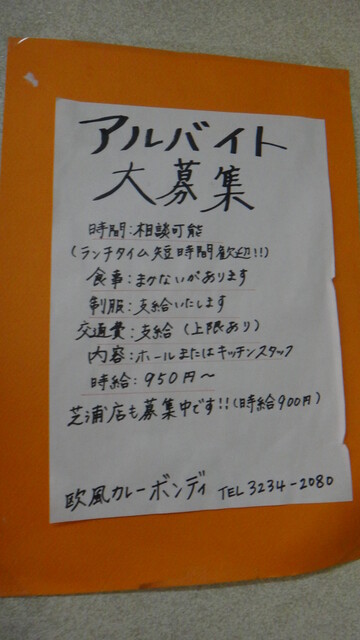 アルバイト
大募集
時間:相談可能
(ランチタイム短時間歓迎!!)
食事:まかないがあります
制服:支給いたします
交通費:支給(上限あり)
内容:ホールまたはキッチンスタッフ
時給:950円〜
芝浦店も募集中です!!(時給900円)
欧風カレーボンディ TEL 3234-2080